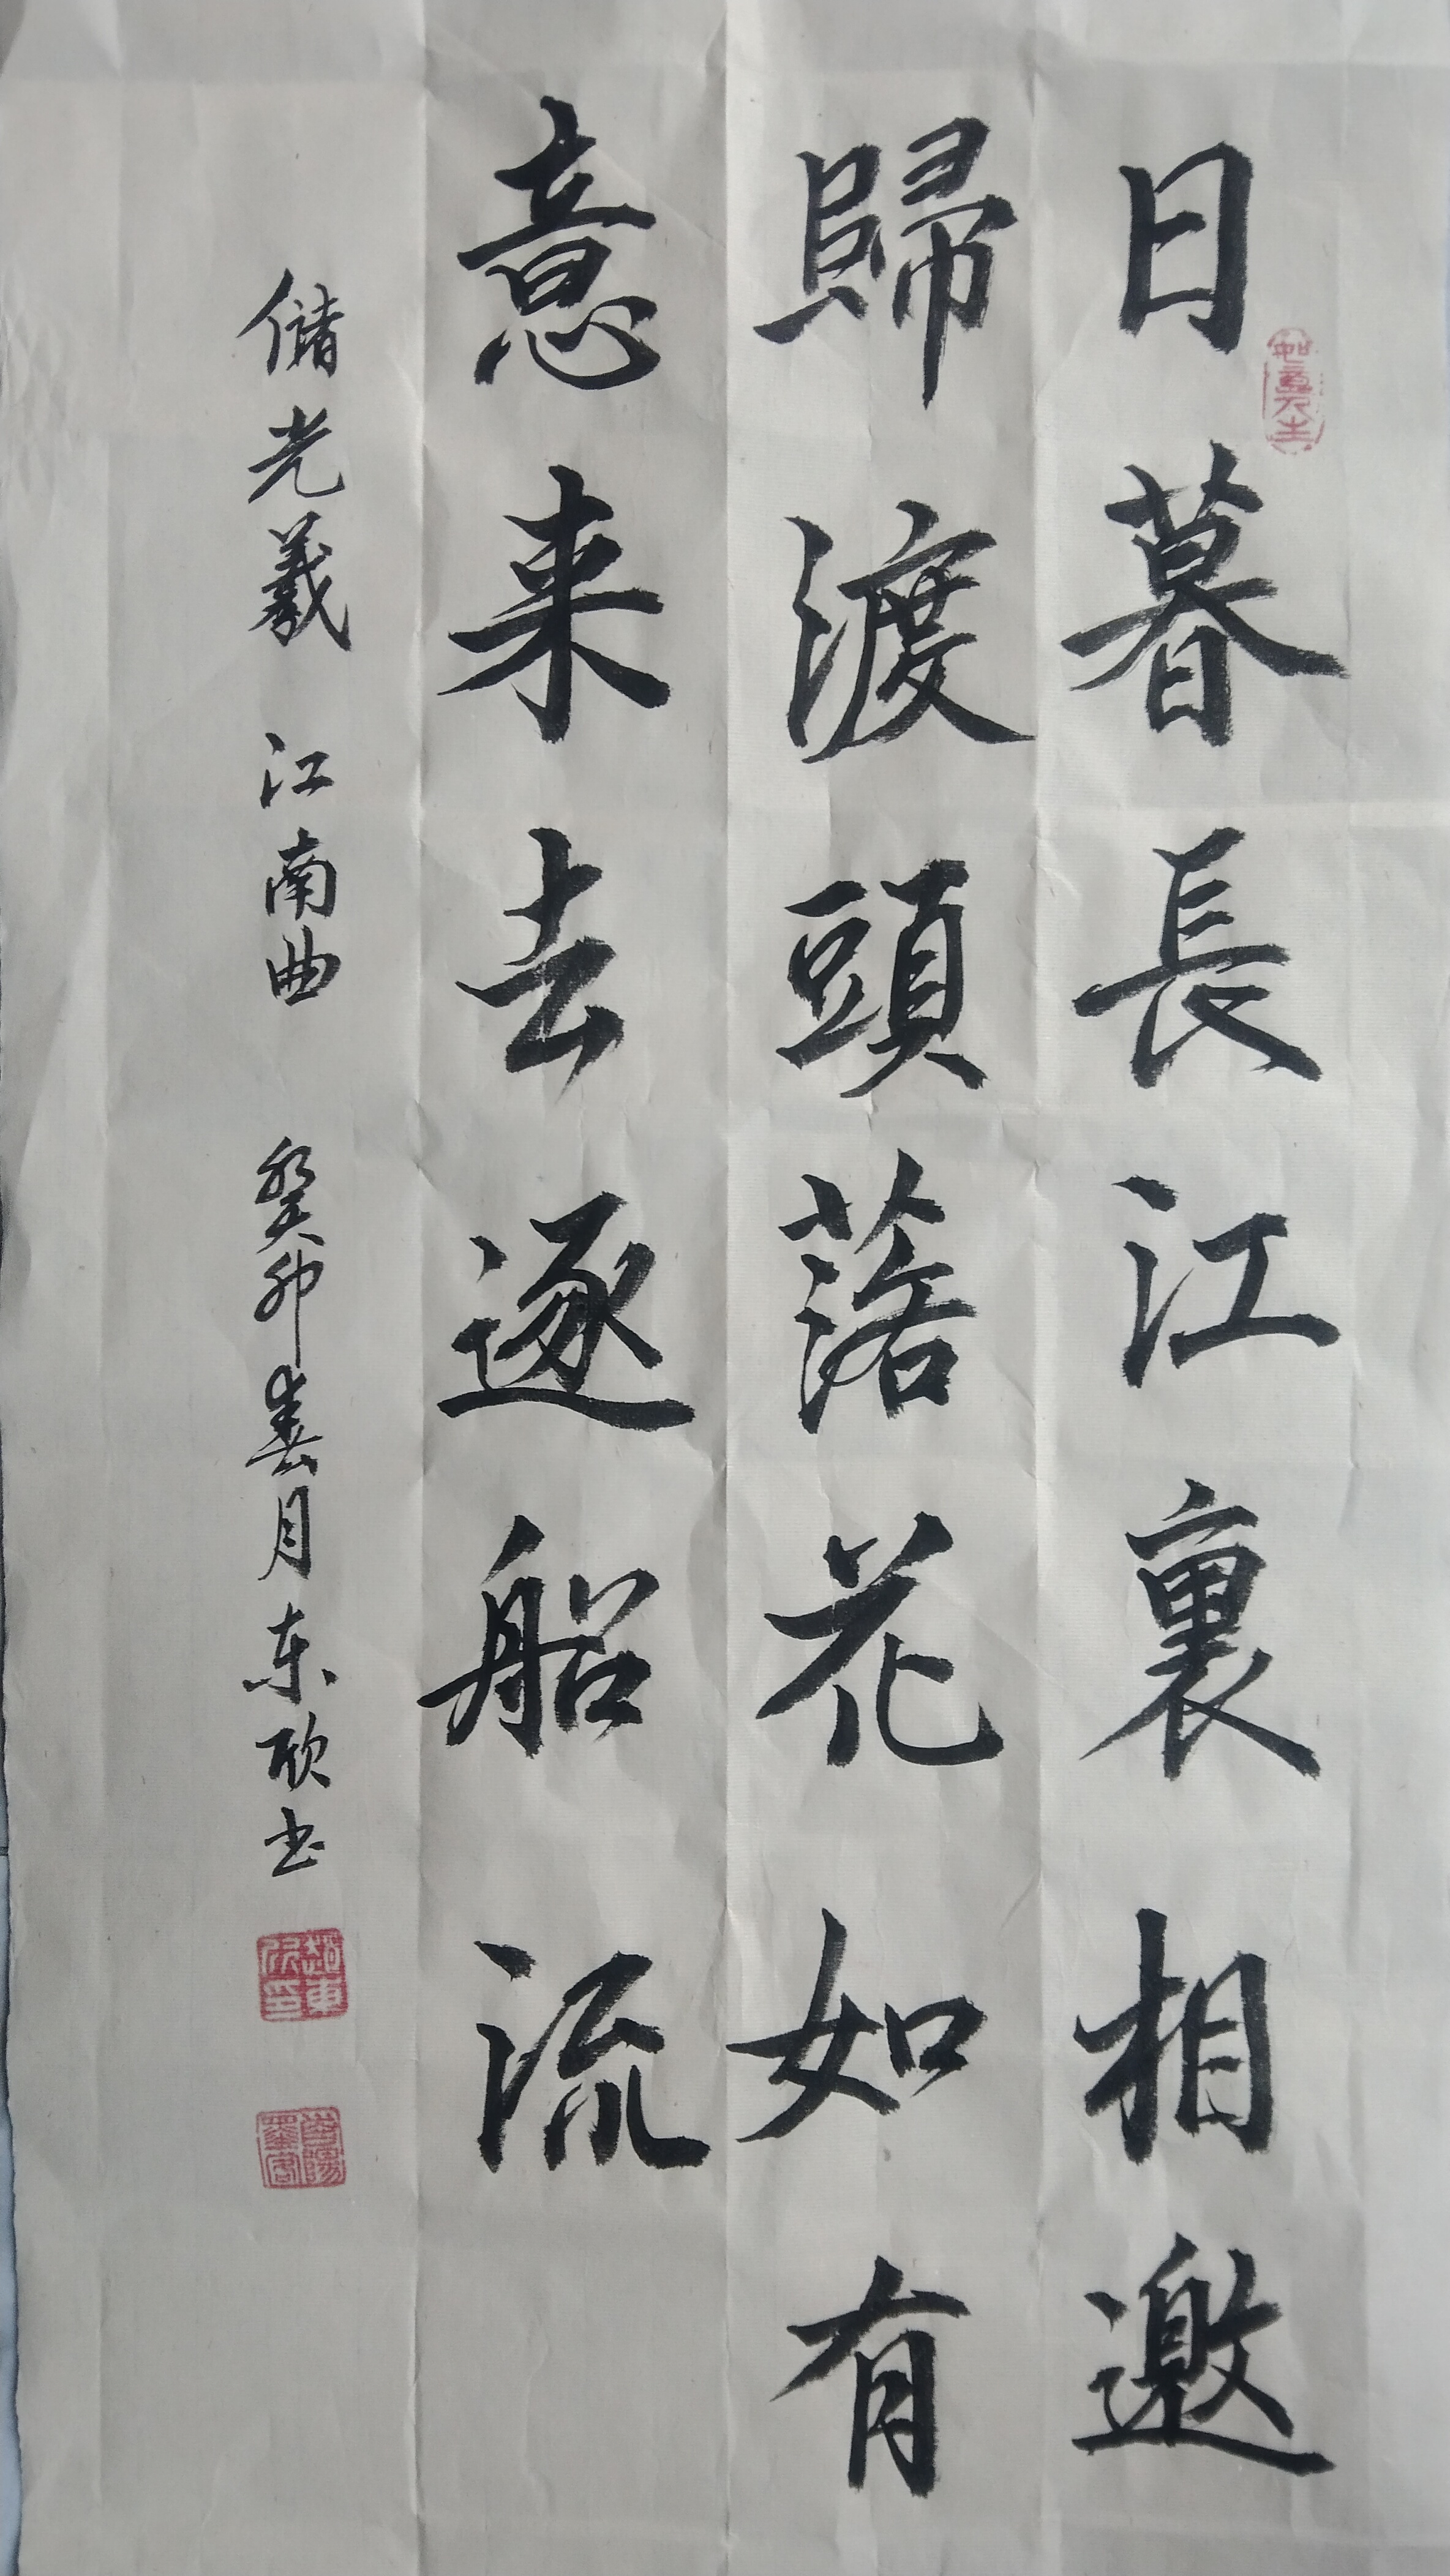 日暮長江裏相邀
歸渡頭落花如有
意来去逐船流
儲光羲 江南曲 癸卯春月东欣书